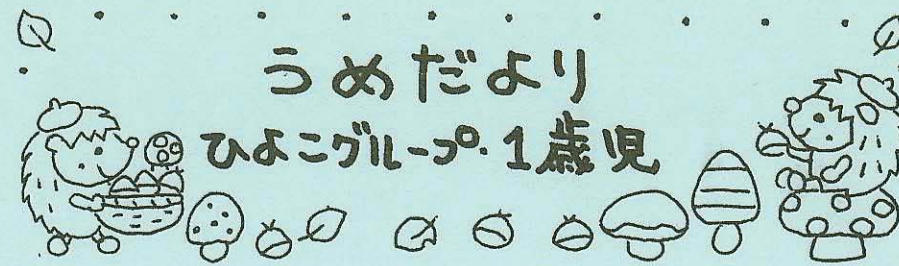 うめだより
ひよこグループ・1歳児